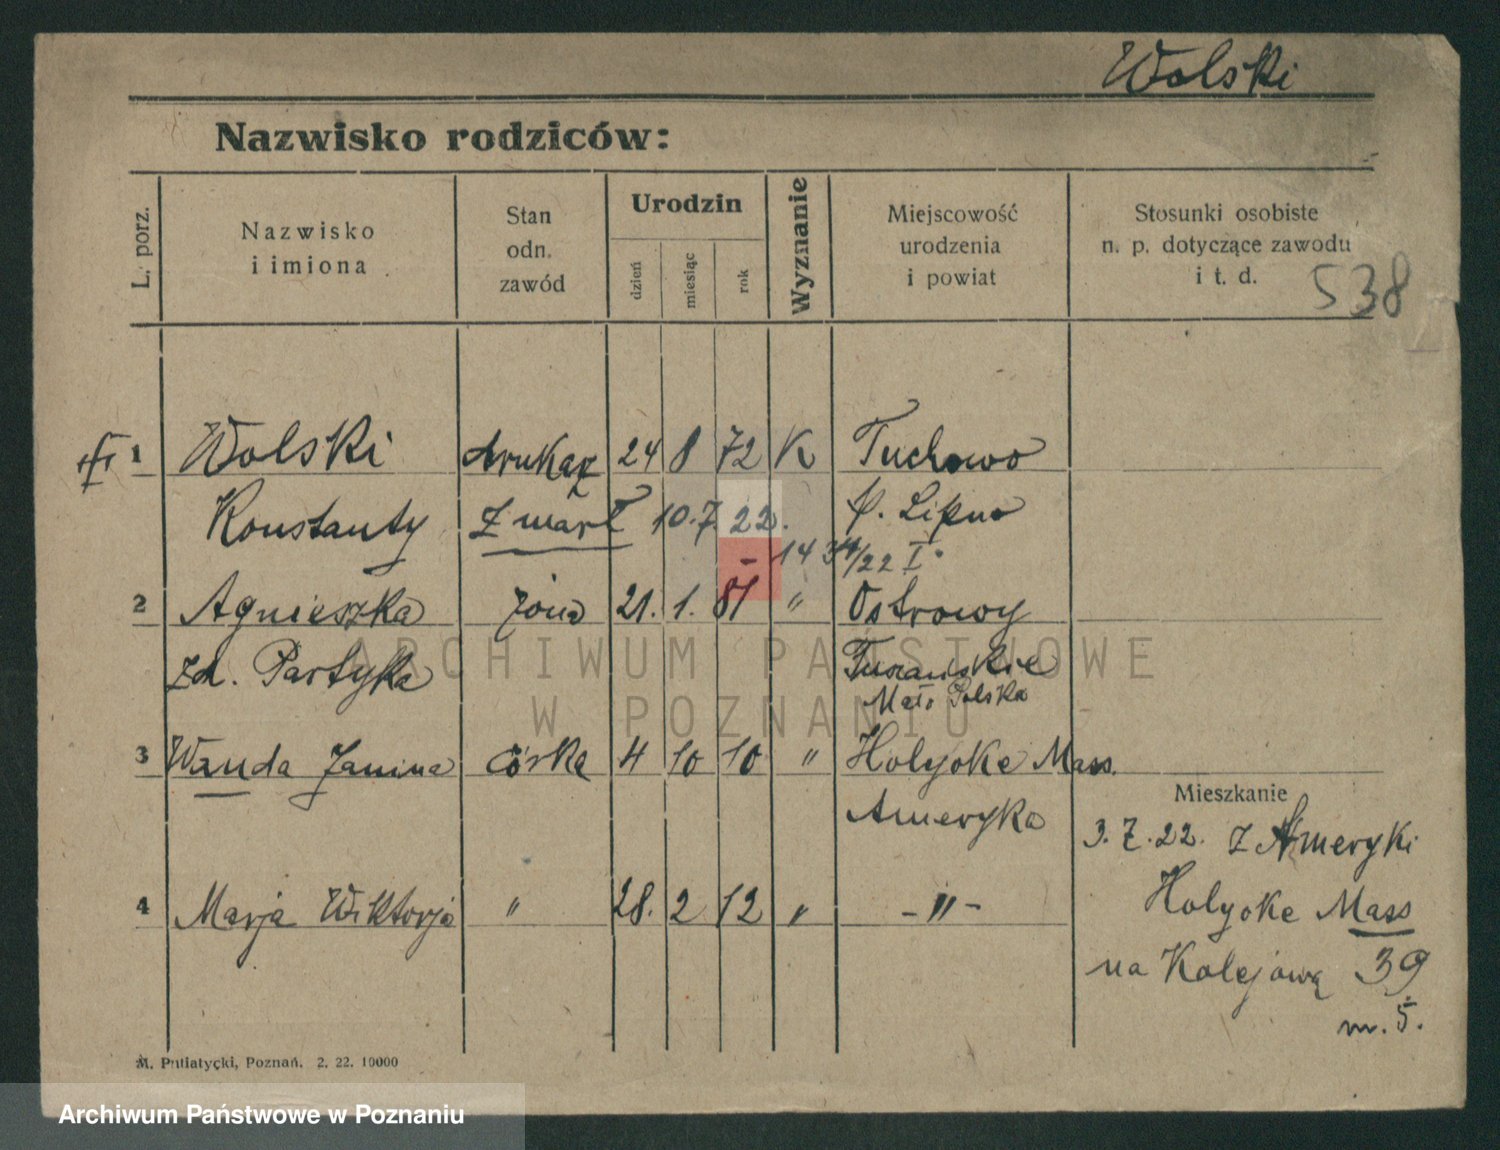 Wolski
Nazwisko rodziców:
L. porz.
Nazwisko
i imiona
Stan
odn.
zawód
Urodzin
dzień
miesiąc
rok
Wyznanie
Miejscowość
urodzenia
i powiat
Stosunki osobiste
n. p. dotyczące zawodu
i t. d.
538
1 Wolski drukarz 24 8 72 K Tuchowo
Konstanty zmarł 10.7.22. p. Lipno
2 Agnieszka żona 21. 1. 81 " Ostrowy
zd. Partyka
Mało Polska
3 Wanda Janina córka 4 10 10 " Holyoke Mass.
Ameryka
Mieszkanie
3.7.22. z Ameryki
4 Marja Wiktorja " 28. 2 12 " -"-
Holyoke Mass
na Kolejową 39
m. 5.
M. Putiatycki, Poznań. 2. 22. 10000
ARCHIWUM PAŃSTWOWE
W POZNANIU
Archiwum Państwowe w Poznaniu